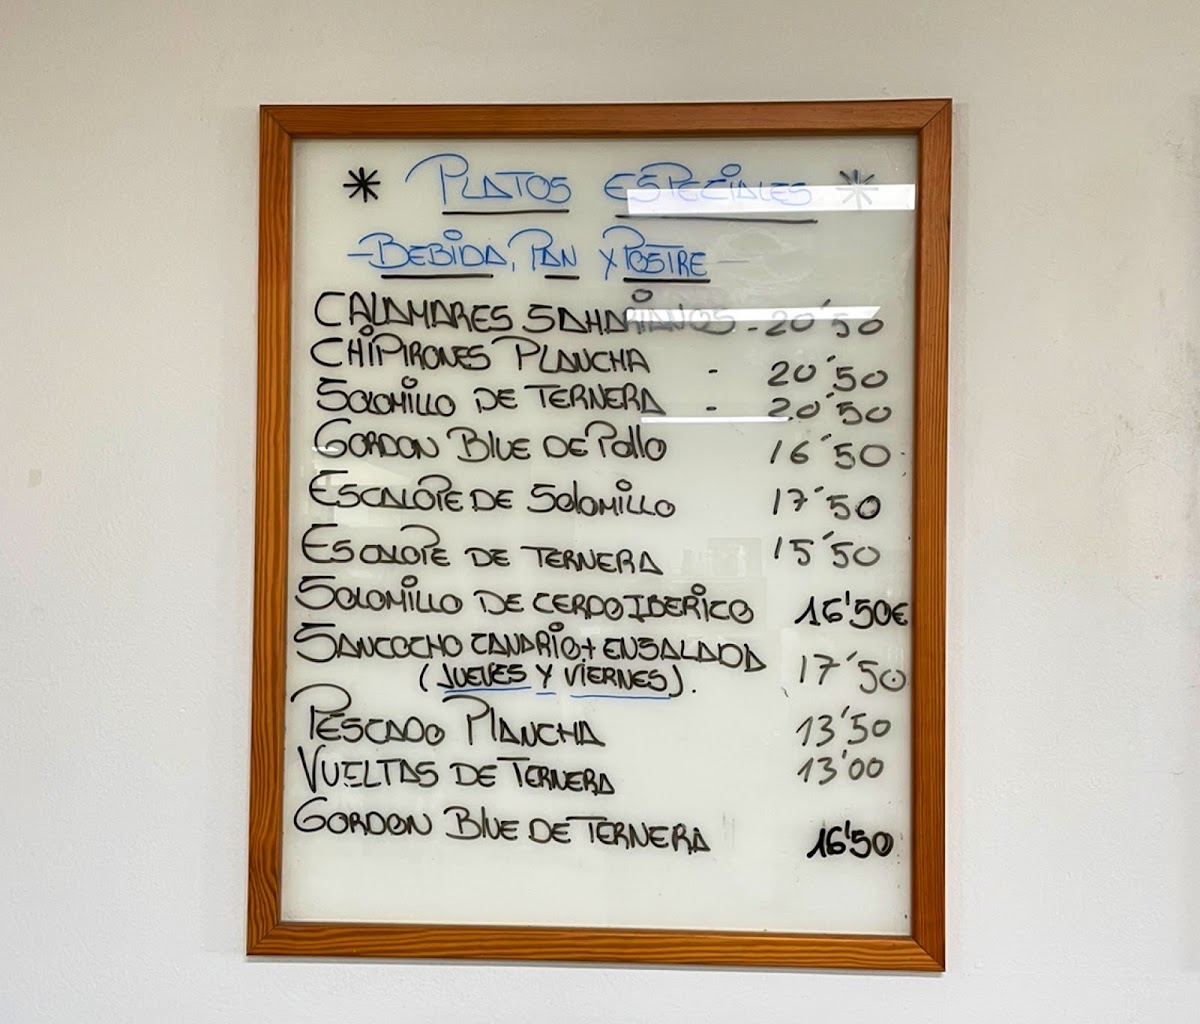 * PLATOS ESPECIALES *
- BEBIDA, PAN Y POSTRE -
CALAMARES SAHARIANOS - 20'50
CHIPIRONES PLANCHA - 20'50
SOLOMILLO DE TERNERA - 20'50
GORDON BLUE DE POLLO 16'50
ESCALOPE DE SOLOMILLO 17'50
ESCALOPE DE TERNERA 15'50
SOLOMILLO DE CERDO IBERICO 16'50€
SANCOCHO CANARIO + ENSALADA 17'50
(JUEVES Y VIERNES).
PESCADO PLANCHA 13'50
VUELTAS DE TERNERA 13'00
GORDON BLUE DE TERNERA 16'50